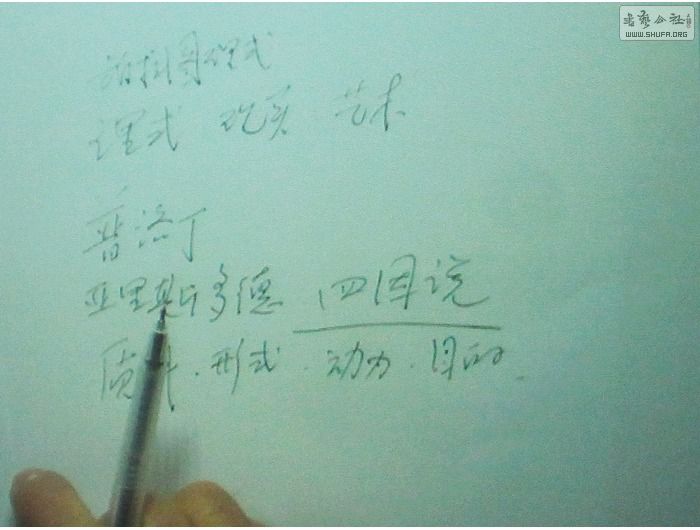 书艺公社
WWW.SHUFA.ORG
柏拉图理式
理式 现实 艺术
普洛丁
亚里斯多德 四因说
质料.形式.动力.目的.